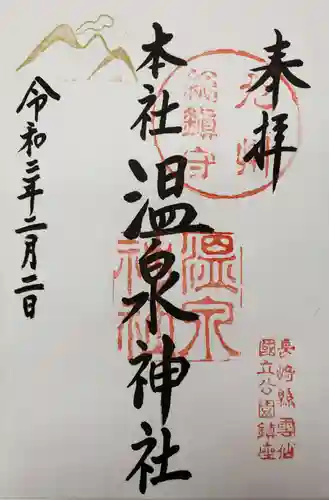 奉拝
本社
温泉神社
令和二年二月二日
温泉
神社
長崎縣雲仙
國立公園鎮座